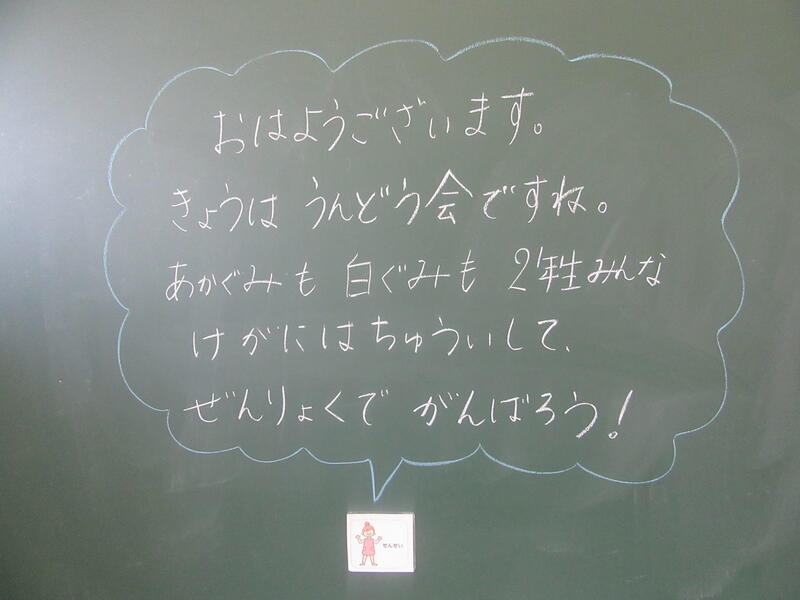 おはようございます。
きょうは うんどう会ですね。
あかぐみも 白ぐみも 2年生みんな
けがにはちゅういして、
ぜんりょくで がんばろう!
せんせい